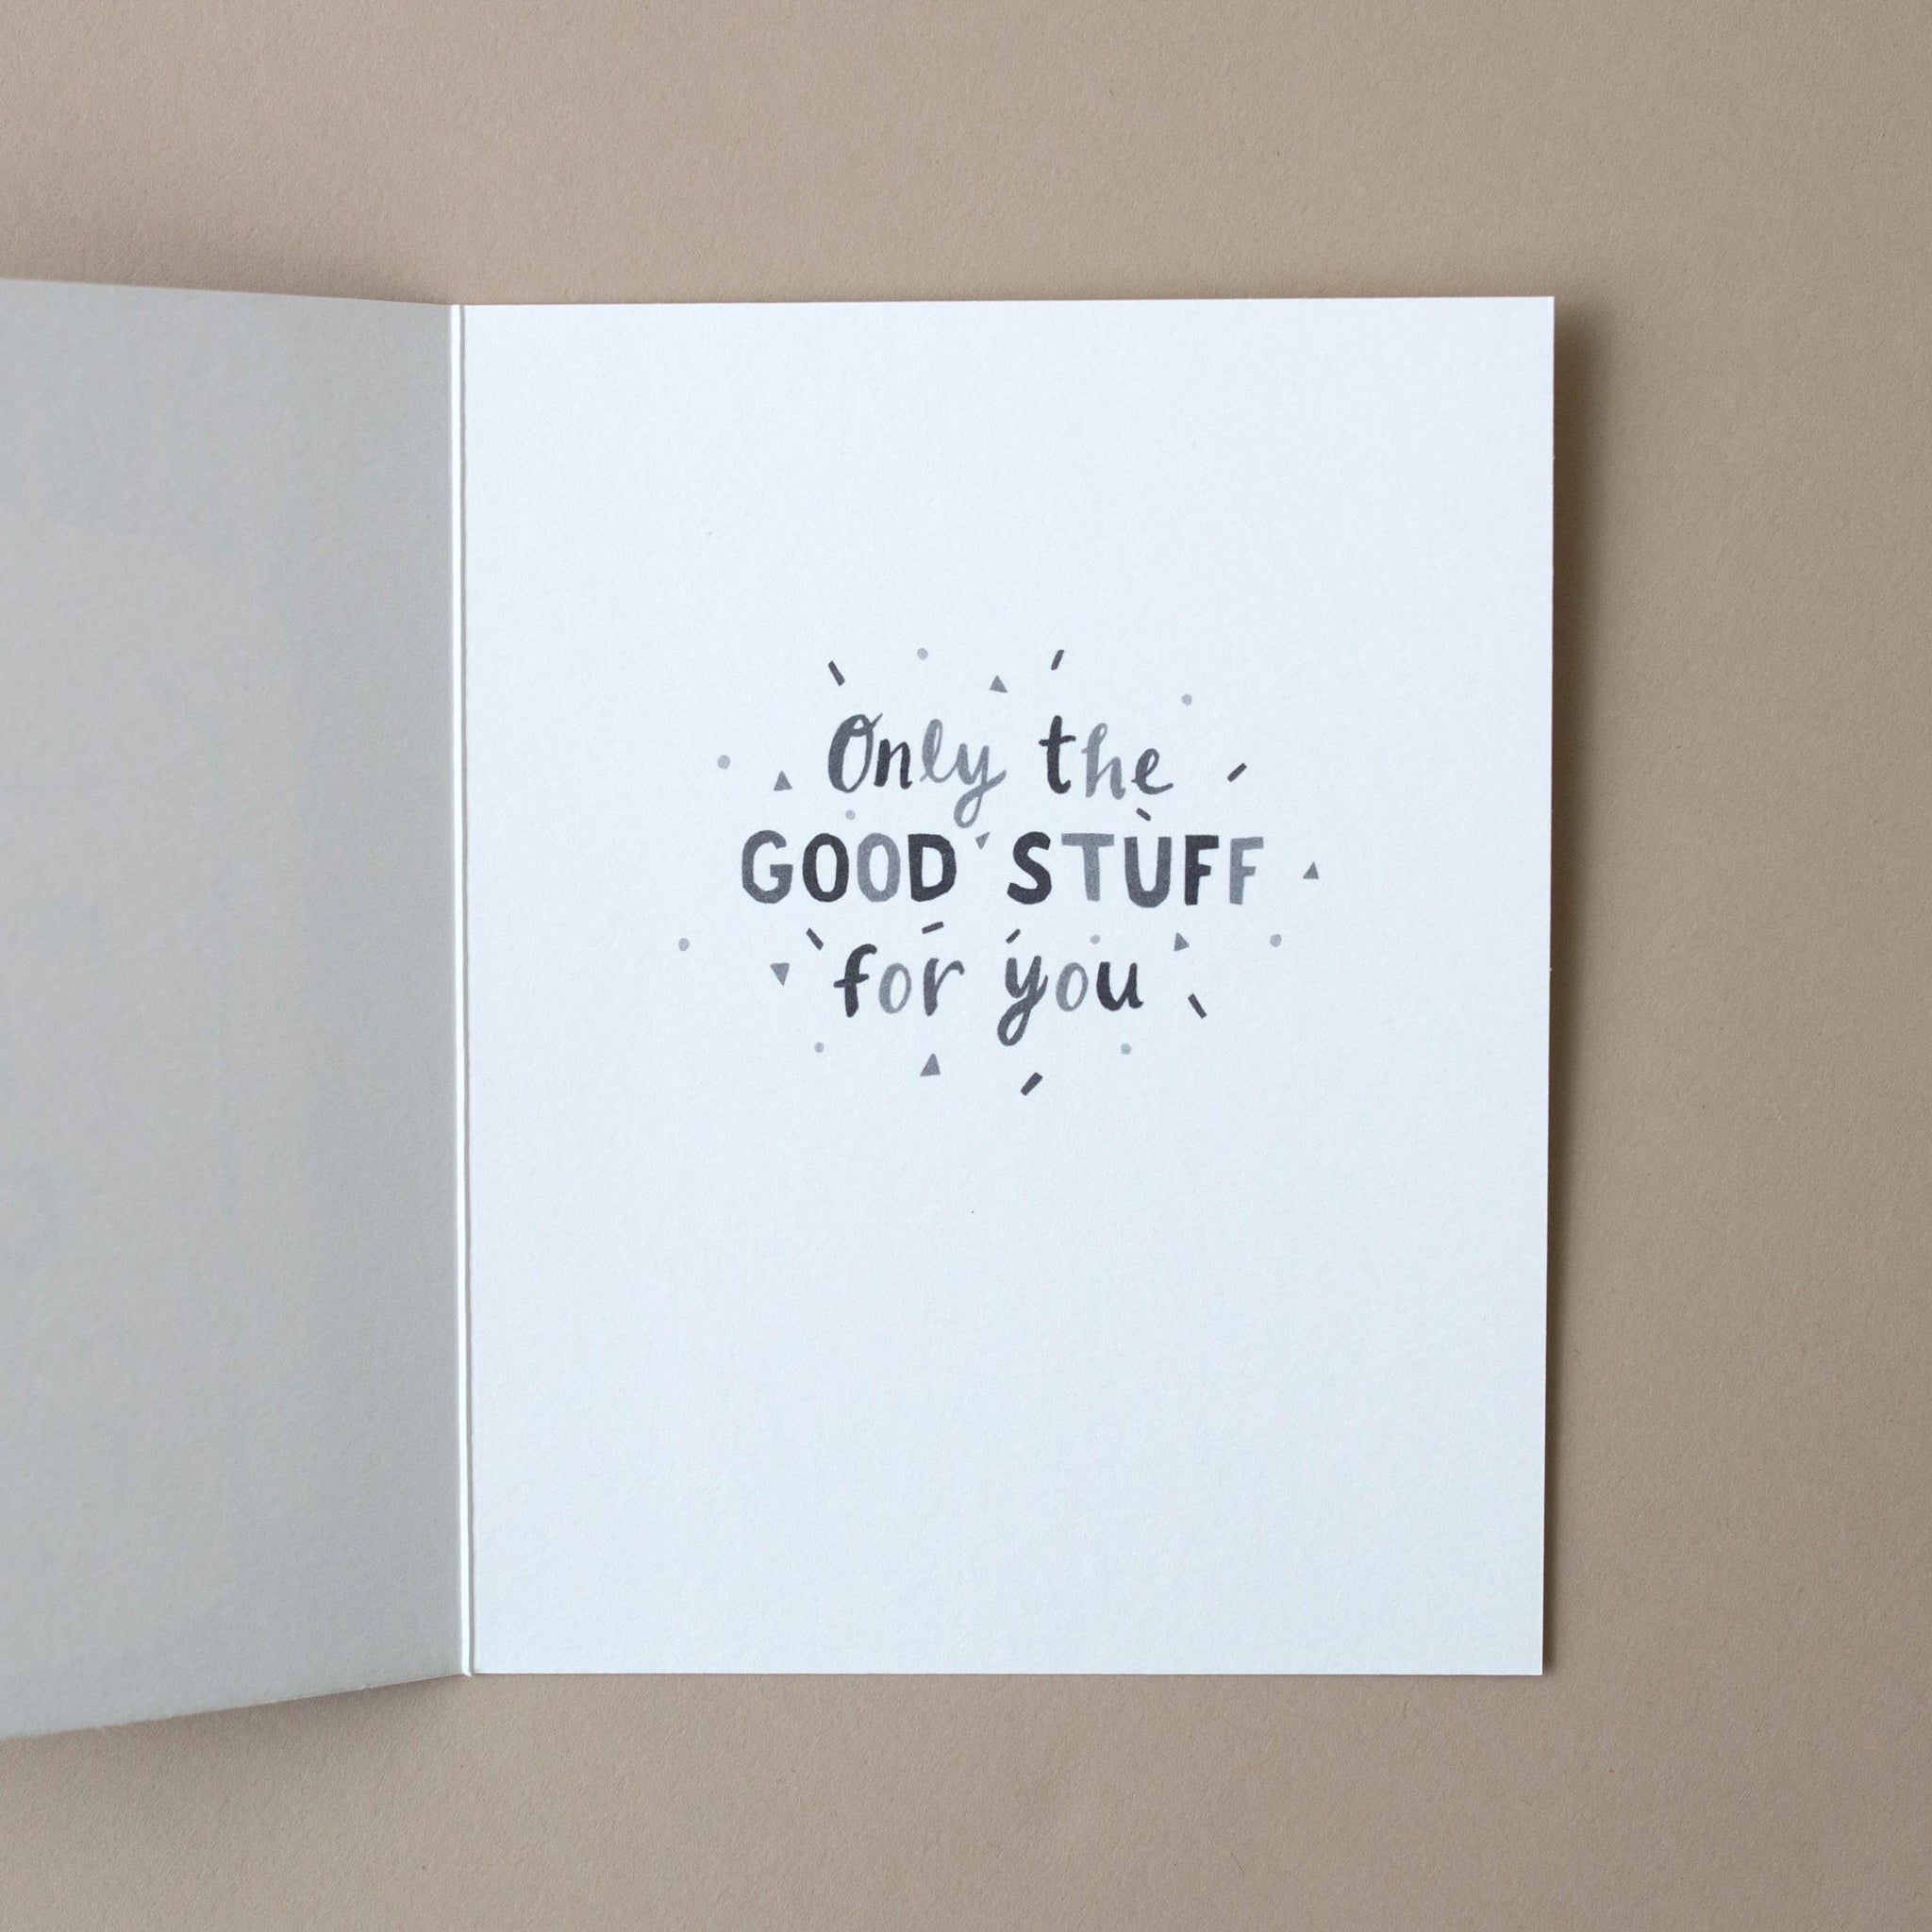 Only the
GOOD STUFF
for you